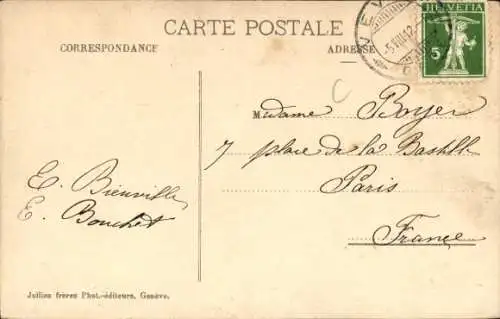 CARTE POSTALE
CORRESPONDANCE
ADRESSE
HELVETIA
5
Madame Boyer
7 place de la Bastille
Paris
France
E. Bienville
E. Bouchet
Jullien frères Phot.-éditeurs, Genève.